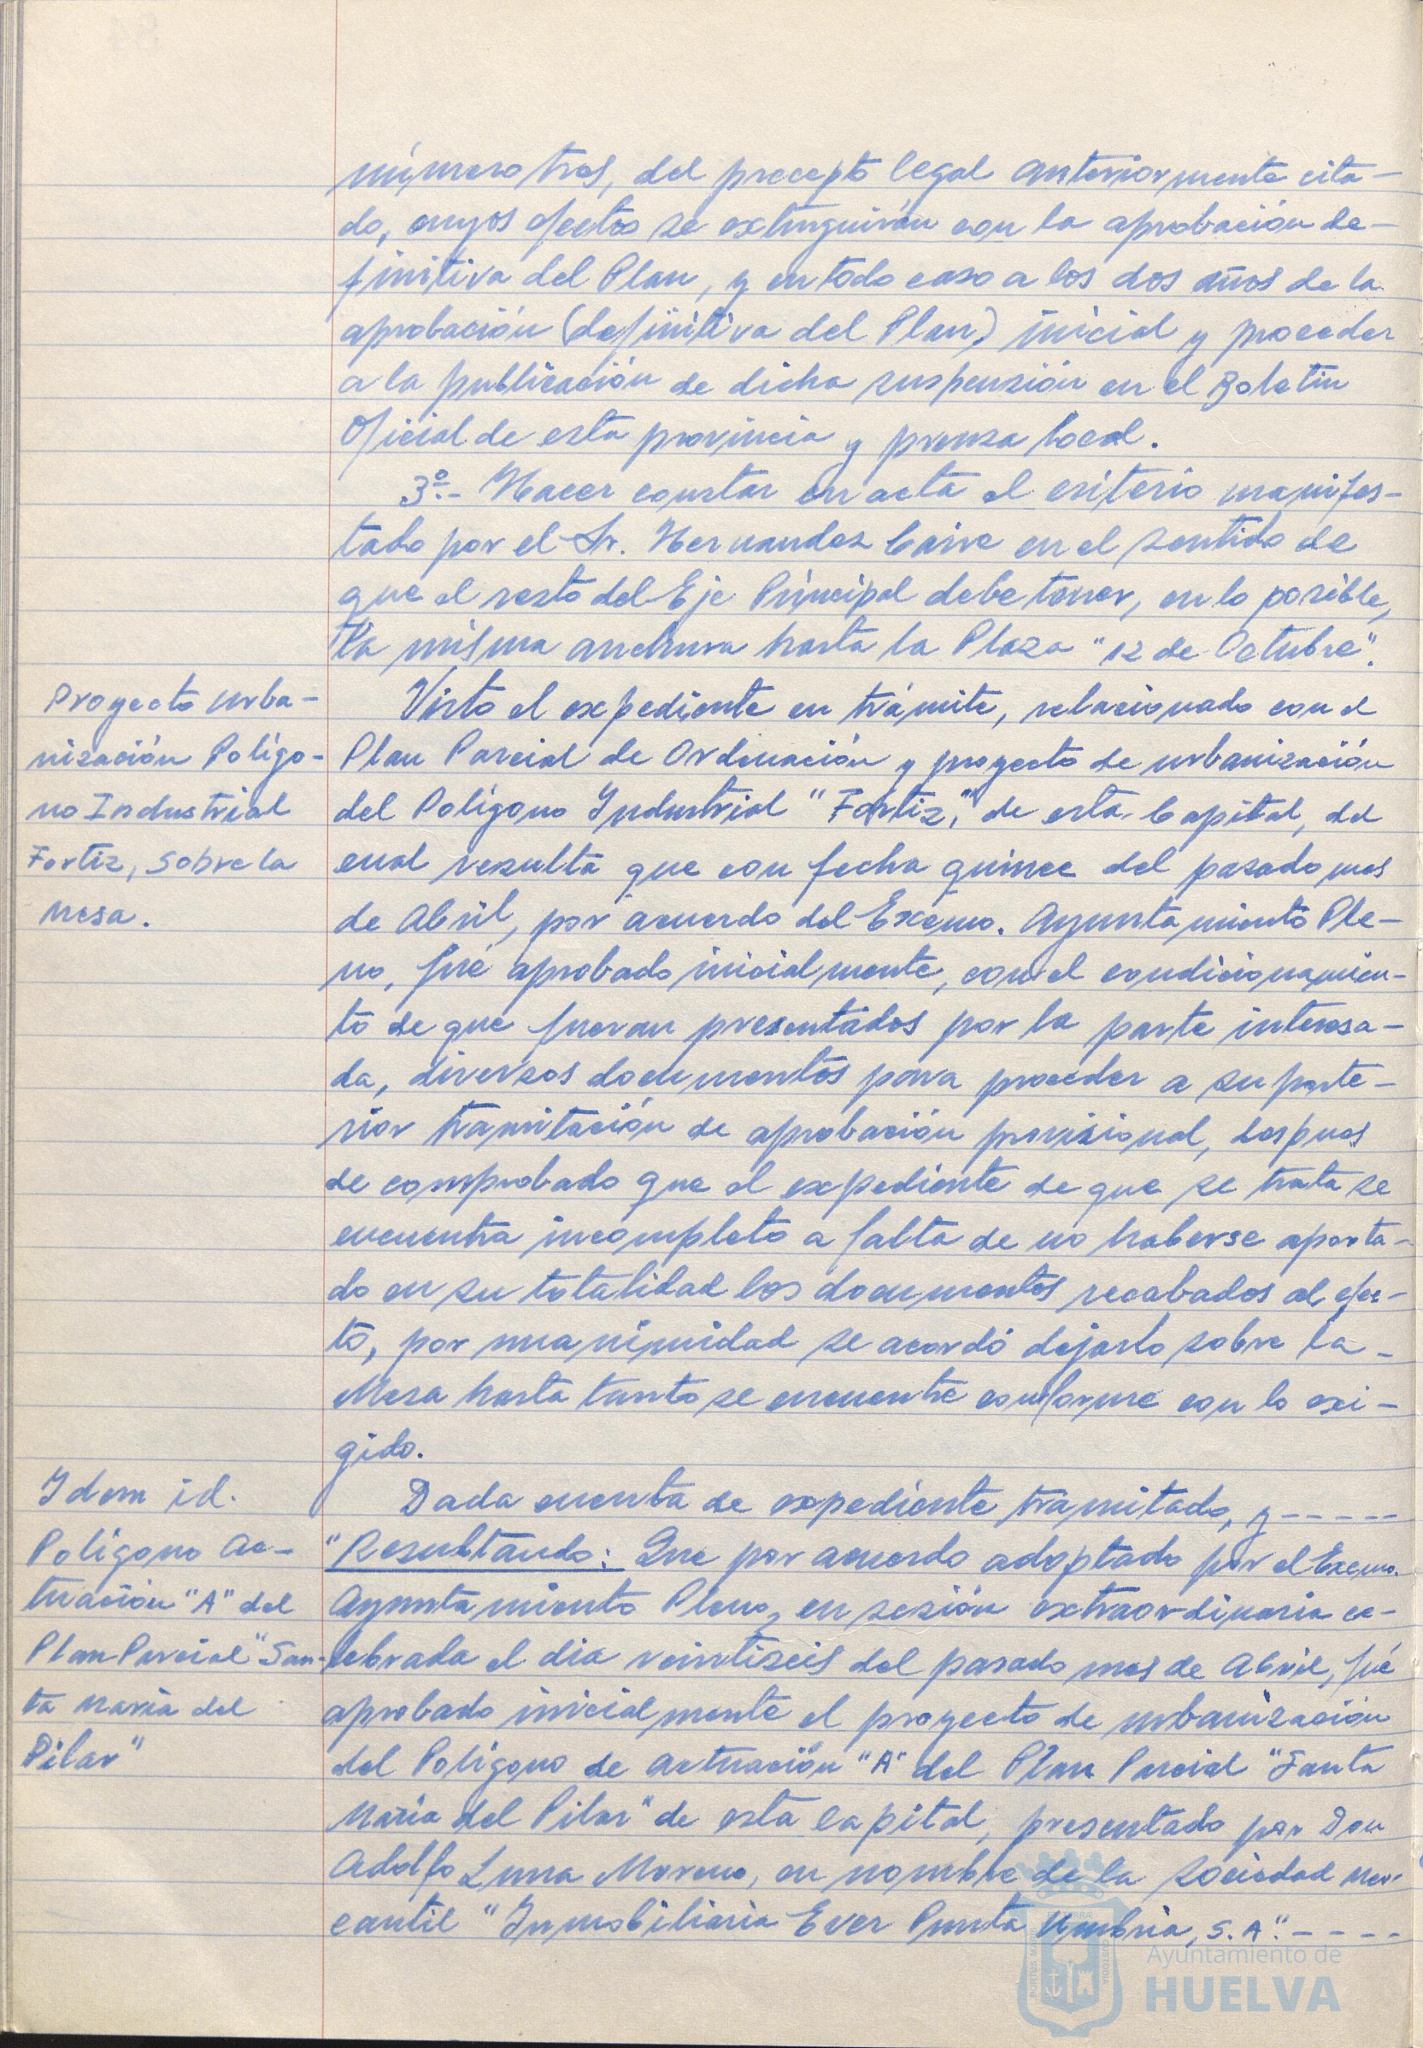 número tres, del precepto legal anteriormente cita-
do, cuyos efectos se extinguirán con la aprobación de-
finitiva del Plan, y en todo caso a los dos años de la
aprobación (definitiva del Plan) inicial y proceder
a la publicación de dicha suspensión en el Boletin
Oficial de esta provincia y prensa local.
3º.- Hacer constar en acta el criterio manifes-
tado por el Sr. Hernandez Caire en el sentido de
que el resto del Eje Principal debe tener, en lo posible,
la misma anchura hasta la Plaza "12 de Octubre".
Proyecto urba-
nización Polígo-
no Industrial
Fortiz, sobre la
mesa.
Visto el expediente en trámite, relacionado con el
Plan Parcial de Ordenación y proyecto de urbanización
del Polígono Industrial "Fortiz", de esta Capital, del
cual resulta que con fecha quince del pasado mes
de Abril, por acuerdo del Excmo. Ayuntamiento Ple-
no, fué aprobado inicialmente, con el condicionamien-
to de que fueran presentados por la parte interesa-
da, diversos documentos para proceder a su poste-
rior tramitación de aprobación provisional, despues
de comprobado que el expediente de que se trata se
encuentra incompleto a falta de no haberse aporta-
do en su totalidad los documentos recabados al efec-
to, por unanimidad se acordó dejarlo sobre la -
Mesa hasta tanto se encuentre conforme con lo exi-
gido.
Idem id.
Polígono Ac-
tuación "A" del
Plan Parcial "San-
ta María del
Pilar"
Dada cuenta de expediente tramitado, y -----
"Resultando: Que por acuerdo adoptado por el Excmo.
Ayuntamiento Pleno, en sesión extraordinaria ce-
lebrada el dia veintiseis del pasado mes de Abril, fué
aprobado inicialmente el proyecto de urbanización
del Polígono de actuación "A" del Plan Parcial "Santa
María del Pilar" de esta capital, presentado por Don
Adolfo Luna Moreno, en nombre de la sociedad mer-
cantil "Inmobiliaria Ever Punta Umbria, S.A". ----
Ayuntamiento de
HUELVA